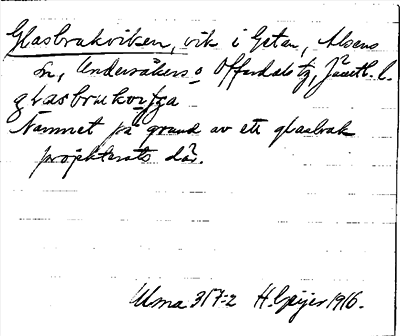 Glasbrukviken, vik i Getan, Alsens
sn, Undersåkers o Offerdals tg, Jämtl. l.
glasbrukvi
Namnet på grund av ett glasbruk
projekterats där.
Ulma 317:2 H. Geijer 1916.